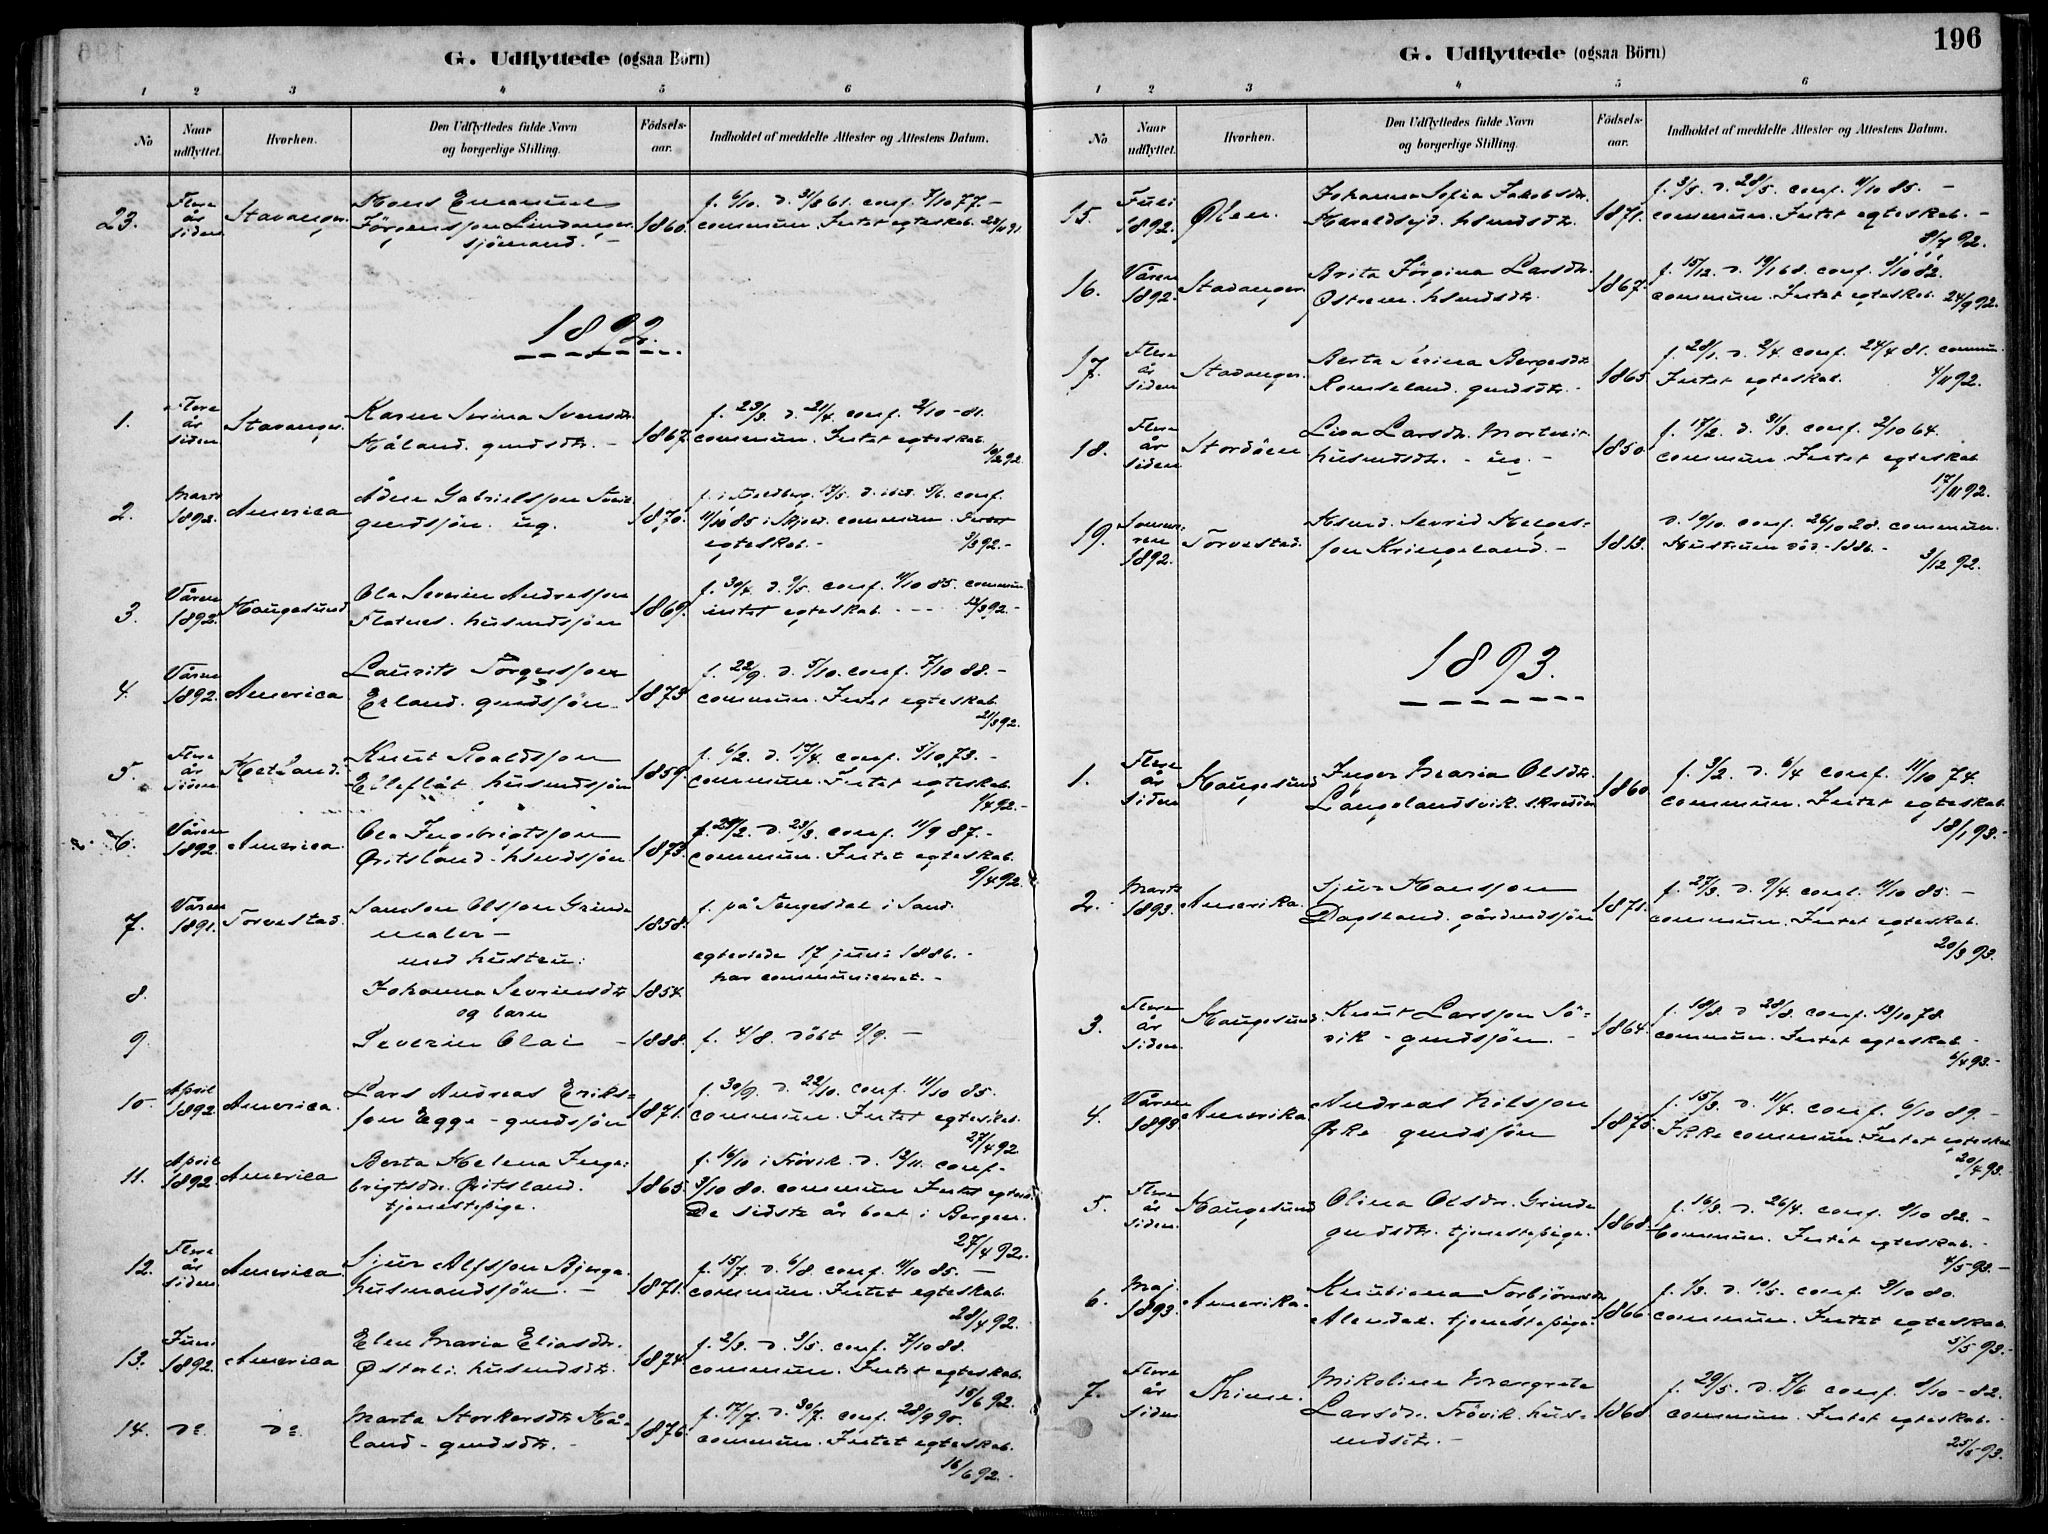 G. Udflyttede (ogsaa Börn)
1 2 3 4 5 6
No
Naar udflyttet.
Hvorhen.
Den Udflyttedes fulde Navn
og borgerlige Stilling.
Födsels-
aar.
Indholdet af meddelte Attester og Attestens Datum.
23.
Flere
år
siden
Stavanger.
Hans Emanuel
Jörgenssøn Lindanger
sjömand. -
1860.
f. 6/10. d. 31/3 61. conf. 7/10 77. -
commun. Intet egteskab.
1892.
1.
Flere
år
siden
Stavanger.
Karen Serina Svensdtr.
Håland. gmdsdtr. -
1867.
f. 23/3. d. 21/4. conf. 2/10 - 81.
commun. Intet egteskab.
10/2 92.
2.
Marts
1892.
America
Ådne Gabrielssøn
gmdssøn. ug.
1870.
11/10 85 i Skjold. commun. Intet
egteskab. - 3/3 92. -
3.
Våren
1892.
Haugesund
Ola Severin Andreassøn
Flatnes. husmdssøn
1869.
f. 30/4. d. 9/5. conf. 11/10 85. commun
intet egteskab. - - - 12/3 92. -
4.
Våren
1892.
America
Laurits Torgerssøn
Erland. gmdssøn
1873
f. 22/9. d. 5/10. conf. 7/10 88. -
commun. Intet egteskab.
21/3 92.
5.
Flere
år
siden
Hetland.
Knut Roaldssøn
Eileflåt husmdssøn
1859.
f. 6/2. d. 17/4. conf. 5/10 73. -
commun. Intet egteskab.
1/4 92. -
6.
Våren
1892.
America.
Ola Ingebrigtssøn
Øritsland. hsmdssøn
1873.
f. 28/2. d. 23/3. conf. 11/9 87. -
commun. Intet egteskab.
9/4 92.
7.
Våren
1891.
Torvestad.
Samson Olssøn Grinde
maler -
med hustru:
1858.
f. på Tengesdal i Sand.
egteviede 17 juni 1886. -
har communiceret. -
8.
Johanna Sevrinsdtr
og barn
1854.
9.
Severin Olai -
1888.
f. 4/8. döbt 9/9. -
10.
April
1892
America.
Lars Andreas Eriks-
søn Egge - gmdssøn
1871.
f. 30/9. d. 22/10. conf. 11/10 85.
commun. Intet egteskab.
27/4 92
11.
April
1892.
America
Berta Helena Inge-
brigtsdtr. Øritsland.
tjenestepige.
1865.
f. 16/10 i Frövik. d. 12/11. conf.
3/10 80. commun Intet egtesk.
De sidste år boet i Bergen.
27/4 92.
12.
Flere
år
siden
America.
Sjur Alfssøn Bjerge.
husmandssøn. -
1871.
f. 15/7. d. 6/8. conf. 11/10 85. -
commun. Intet egteskab.
28/4 92.
13.
Juni
1892.
America
Elen Maria Eliasdtr.
Østerli. husmdsdtr.
1874.
f. 2/3. d. 3/5. conf. 7/10 88.
commun. Intet egteskab.
15/6 92.
14.
do.
do.
Marta Storkersdtr. Hå-
land - gmdsdtr. -
1876.
f. 17/7. d. 30/7. conf. 28/9 90.
commun. Intet egteskab.
16/6 92. -
196
G. Udflyttede (ogsaa Börn)
1 2 3 4 5 6
No
Naar
udflyttet.
Hvorhen.
Den Udflyttedes fulde Navn
og borgerlige Stilling.
Födsels-
aar.
Indholdet af meddelte Attester og Attestens Datum.
15.
Juli
1892.
Ølen.
Johanna Sofia Jakobsdtr.
Haraldseid. hsmdsdtr.
1871.
f. 3/5. d. 28/5. conf. 11/10 85. -
commun. Intet egteskab. -
8/7 92.
16.
Våren
1892.
Stavanger.
Brita Jörgina Larsdtr.
Østrem. hsmdsdtr.
1867.
f. 15/12. d. 19/1 68. conf. 8/10 82.
commun. Intet egteskab. 24/9 92.
17.
Flere
år
siden
Stavanger.
Berta Serina Bergesdtr
Romseland. gmdsdtr. -
1865
f. 28/1. d. 2/4. conf. 24/4 81. commun.
Intet egteskab. 4/11 92.
18.
Flere
år
siden
Stordöen
Lisa Larsdtr. Mortveit
husmdsdtr. - ug. -
1850.
f. 17/2. d. 31/3. conf. 2/10 64.
commun. Intet egteskab
17/11 92.
19.
Somme-
ren
1892.
Torvestad.
Hsmd. Sevrid Helges-
søn Kringeland. -
1813.
d. 19/10. conf. 26/10 28. commun.
Hustruen död - 1886. -
3/12 92.
1893.
1.
Flere
år
siden
Haugesund
Inger Maria Olsdtr.
Langelandsvik.
1860
f. 3/2. d. 6/4 conf. 11/10 74.
commun. Intet egteskab
18/1 93. -
2.
Marts
1893.
Amerika.
Sjur Hanssøn
Dagsland. gårdmdssøn
1871.
f. 27/3. d. 9/4. conf. 11/10 85. -
commun. Intet egteskab.
20/3 93.
3.
Flere
år
siden.
Haugesund
Knut Larssøn Sö-
vik - gmdssøn. -
1864.
f. 18/8. d. 28/8. conf. 13/10 78.
commun. Intet egteskab -
6/4 93. -
4.
Våren
1893
Amerika
Andreas Nilssøn
Ørke gmdssøn
1875.
f. 15/3. d. 11/4. conf. 6/10 89. -
Ikke commun. Intet egteskab
20/4 93.
5.
Flere
år
siden.
Haugesund
Olina Olsdtr. Grinde
gmdsdtr. tjenestepige.
1868.
f. 16/3. d. 26/4. conf. 8/10 82. -
Commun. Intet egteskab. -
4/5 93. -
6.
Maj
1893.
Amerika.
Knutiana Torbjörnsdtr
Alendal. tjenestepige
1866.
f. 9/3. d. 10/5. conf. 3/10 80.
commun. Intet egteskab.
5/5 93. -
7.
Flere
år
siden
Thime.
Nikoline Margrete
Larsdtr. Frövik. hus-
mdsdtr. -
1868
f. 29/5. d. 7/6 conf. 8/10 - 82.
commun. Intet egteskab. -
25/5 93.